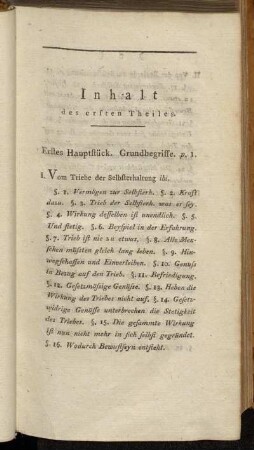 Inhalt
des ersten Theiles.
Erstes Hauptstück. Grundbegriffe. p. 1.
I. Vom Triebe der Selbsterhaltung ibi.
§. 1. Vermögen zur Selbsterh. §. 2. Kraft
dazu. §. 3. Trieb der Selbsterh. was er sey.
§. 4. Wirkung desselben ist unendlich. §. 5
Und stetig. §. 6. Beyspiel in der Erfahrung.
§. 7. Trieb ist nie zu etwas. §. 8. Alle Men-
schen müssten gleich lang leben. §. 9. Hin-
wegschaffen und Einverleiben. §. 10. Genuss
in Bezug auf den Trieb. §. 11. Befriedigung.
§. 12. Gesetzmäsige Genüsse. §. 13. Heben die
Wirkung des Triebes nicht auf. §. 14. Gesetz-
widrige Genüsse unterbrechen die Stetigkeit
des Triebes. §. 15. Die gesammte Wirkung
ist nun nicht mehr in sich selbst gegründet.
§. 16. Wodurch Bewustseyn entsteht.